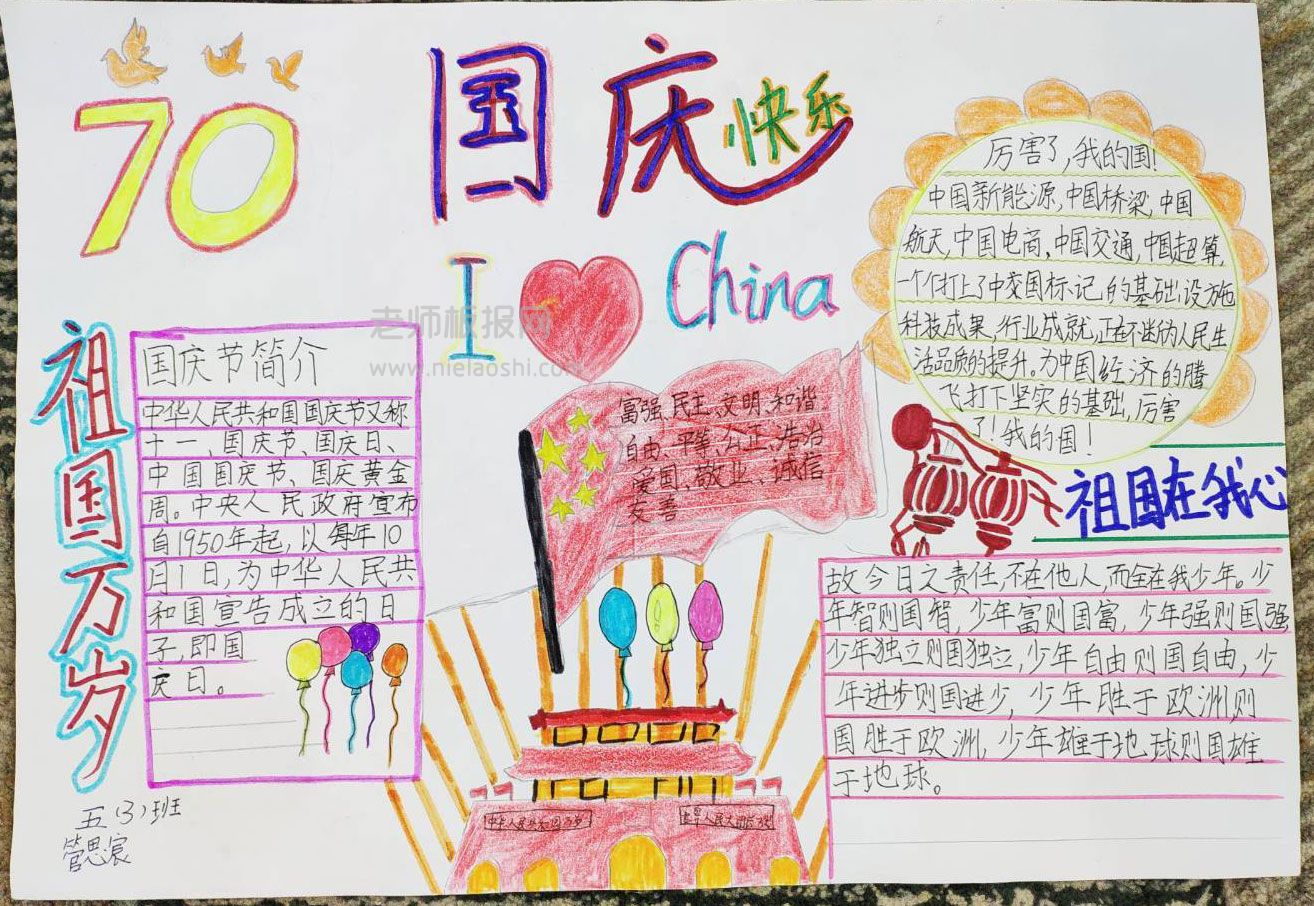 70
国庆
快乐
I
China
老师板报网
www.nielaoshi.com
祖国万岁
国庆节简介
中华人民共和国国庆节又称
十一、国庆节、国庆日、
中国国庆节、国庆黄金
周。中央人民政府宣布
自1950年起,以每年10
月1日,为中华人民共
和国宣告成立的日
子,即国
庆日。
五(3)班
管思宸
富强、民主、文明、和谐
自由、平等、公正、浩治
爱国、敬业、诚信
友善
厉害了,我的国!
中国新能源,中国桥梁,中国
航天,中国电商、中国交通,中国超算,
一个个打上了中国标记的基础设施
科技成果,行业成就,正在不断为人民生
活品质的提升。为中国经济的腾
飞打下坚实的基础,厉害
了!我的国!
祖国在我心
故今日之责任,不在他人,而全在我少年。少
年智则国智,少年富则国富,少年强则国强
少年独立则国独立,少年自由则国自由,少
年进步则国进步,少年胜于欧洲,则
国胜于欧洲,少年雄于地球则国雄
于地球。
中华人民共和国万岁